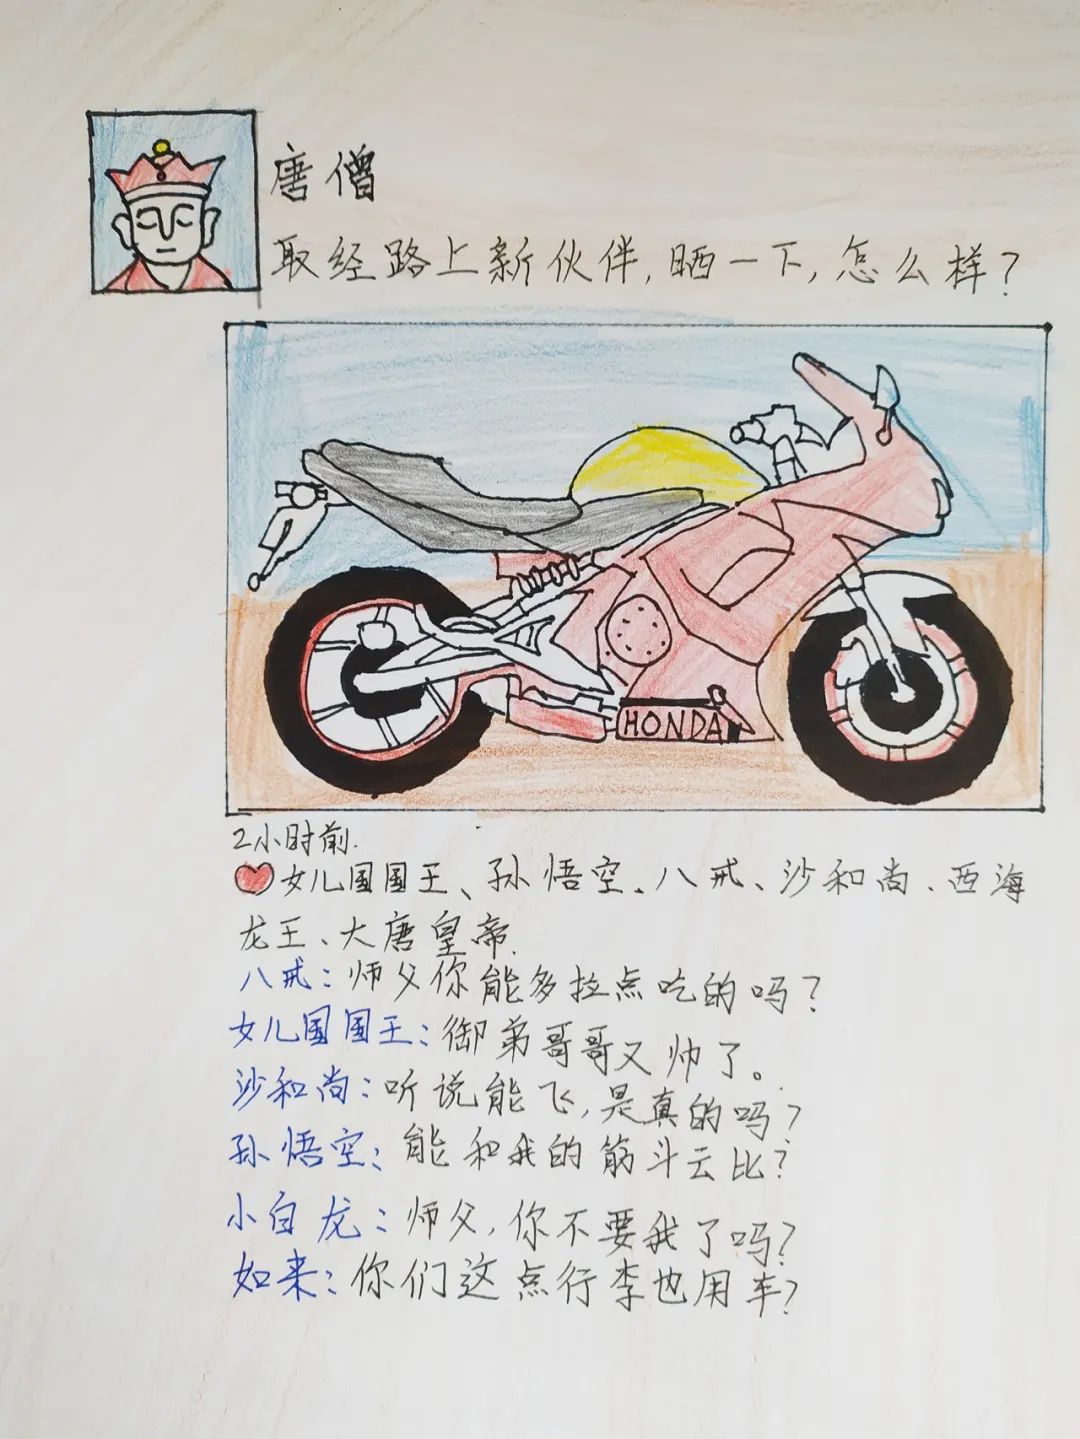 唐僧
取经路上新伙伴,晒一下,怎么样?
HONDA
2小时前.
女儿国国王、孙悟空、八戒、沙和尚、西海
龙王、大唐皇帝.
八戒:师父你能多拉点吃的吗?
女儿国国王:御弟哥哥又帅了。
沙和尚:听说能飞,是真的吗?
孙悟空:能和我的筋斗云比?
小白龙:师父,你不要我了吗?
如来:你们这点行李也用车?